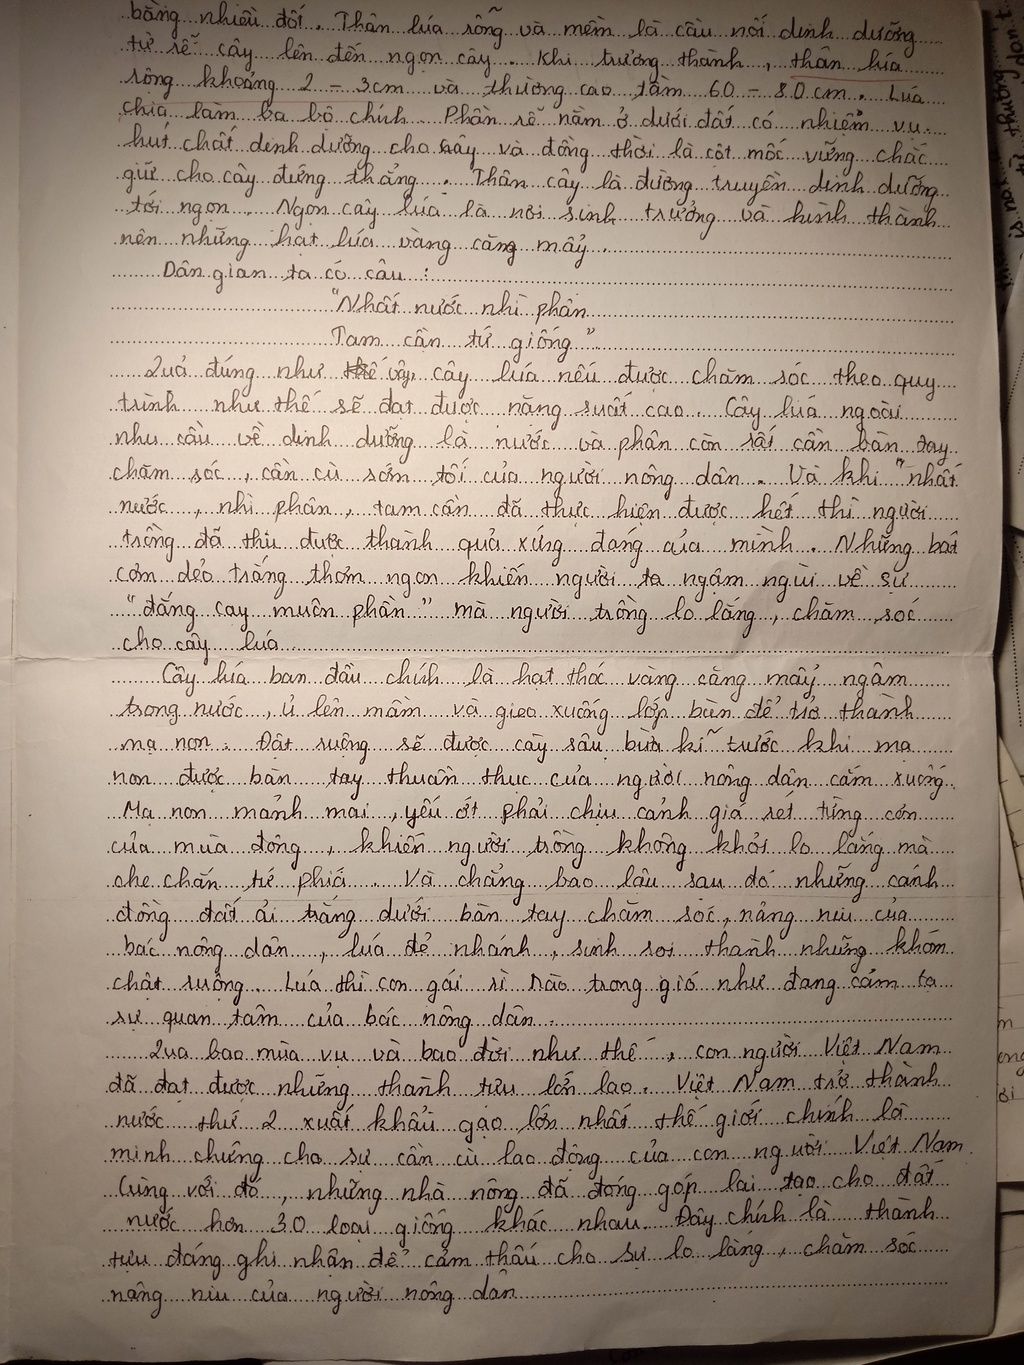 bằng nhiều đốt. Thân lúa rỗng và mềm là cầu nối dinh dưỡng
từ rễ cây lên đến ngọn cây. Khi trưởng thành, thân lúa
rộng khoảng 2 - 3cm và thường cao tầm 60 - 80cm. Lúa
chia làm ba bộ chính. Phần rễ nằm ở dưới đất có nhiệm vụ
hút chất dinh dưỡng cho cây và đồng thời là cột mốc vững chắc
giữ cho cây đứng thẳng. Thân cây là đường truyền dinh dưỡng
tới ngọn. Ngọn cây lúa là nơi sinh trưởng và hình thành
nên những hạt lúa vàng căng mẩy.
Dân gian ta có câu :
"Nhất nước nhì phân
Tam cần tứ giống"
Quả đúng như vậy, cây lúa nếu được chăm sóc theo quy
trình như thế sẽ đạt được năng suất cao. Cây lúa ngoài
nhu cầu về dinh dưỡng là nước và phân còn rất cần bàn tay
chăm sóc, cần cù sớm tối của người nông dân. Và khi "nhất
nước, nhì phân, tam cần đã thực hiện được hết thì người
trồng đã thu được thành quả xứng đáng của mình. Những bát
cơm dẻo trắng thơm ngon khiến người ta ngậm ngùi về sự
"đắng cay muôn phần" mà người trồng lo lắng, chăm sóc
cho cây lúa
Cây lúa ban đầu chính là hạt thóc vàng căng mẩy ngâm
trong nước, ủ lên mầm và gieo xuống lớp bùn để trở thành
mạ non. Đất ruộng sẽ được cày sâu bừa kĩ trước khi mạ
non được bàn tay thuần thục của người nông dân cắm xuống.
Mạ non mảnh mai, yếu ớt phải chịu cảnh giá rét từng cơn
của mùa đông, khiến người trồng không khỏi lo lắng mà
che chắn tứ phía. Và chẳng bao lâu sau đó những cánh
đồng đất ải trắng dưới bàn tay chăm sóc, nâng niu của
bác nông dân, lúa đẻ nhánh, sinh sôi thành những khóm
chật ruộng. Lúa thì con gái rì rào trong gió như đang cảm tạ
sự quan tâm của bác nông dân.
Qua bao mùa vụ và bao đời như thế, con người Việt Nam
đã đạt được những thành tựu lớn lao. Việt Nam trở thành
nước thứ 2 xuất khẩu gạo lớn nhất thế giới chính là
minh chứng cho sự cần cù lao động của con người Việt Nam.
Cùng với đó, những nhà nông đã đóng góp lai tạo cho đất
nước hơn 30 loại giống khác nhau. Đây chính là thành
tựu đáng ghi nhận để cảm thấu cho sự lo lắng, chăm sóc
nâng niu của người nông dân